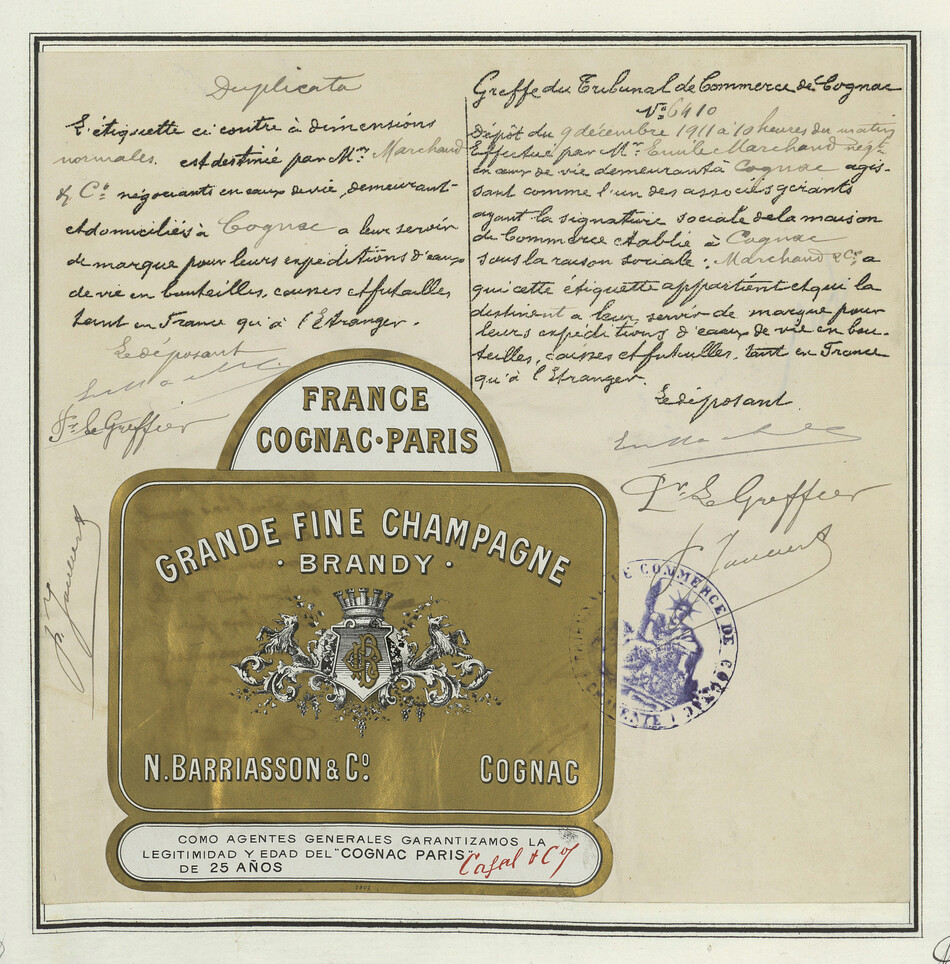 Duplicata
L'étiquette ci contre à dimensions
normales. est destinée par Mrs. Marchand
& Co négociants en eaux de vie, demeurant
et domiciliés à Cognac a leur servir
de marque pour leurs expéditions d'eaux
de vie en bouteilles, caisses et futailles
tant en France qu'à l'Etranger.
Le déposant
Pr. Le Greffier
Greffe du Tribunal de Commerce de Cognac
No. 6410
Dépôt du 9 décembre 1911 à 10 heures du matin
Effectué par Mr. Emile Marchand negt.
en eaux de vie demeurant à Cognac agis-
sant comme l'un des associés gérants
ayant la signature sociale de la maison
de Commerce établie à Cognac
sous la raison sociale: Marchand & Co a
qui cette étiquette appartient et qui la
destinent a leur servir de marque pour
leurs expéditions d'eaux de vie en bou-
teilles, caisses et futailles, tant en France
qu'à l'Etranger.
Le déposant
Pr. Le Greffier
FRANCE
COGNAC·PARIS
GRANDE FINE CHAMPAGNE
· BRANDY ·
N. BARRIASSON & Co.
COGNAC
COMO AGENTES GENERALES GARANTIZAMOS LA
LEGITIMIDAD Y EDAD DEL "COGNAC PARIS"
DE 25 AÑOS
Casal & Co
DE COMMERCE DE COGNAC